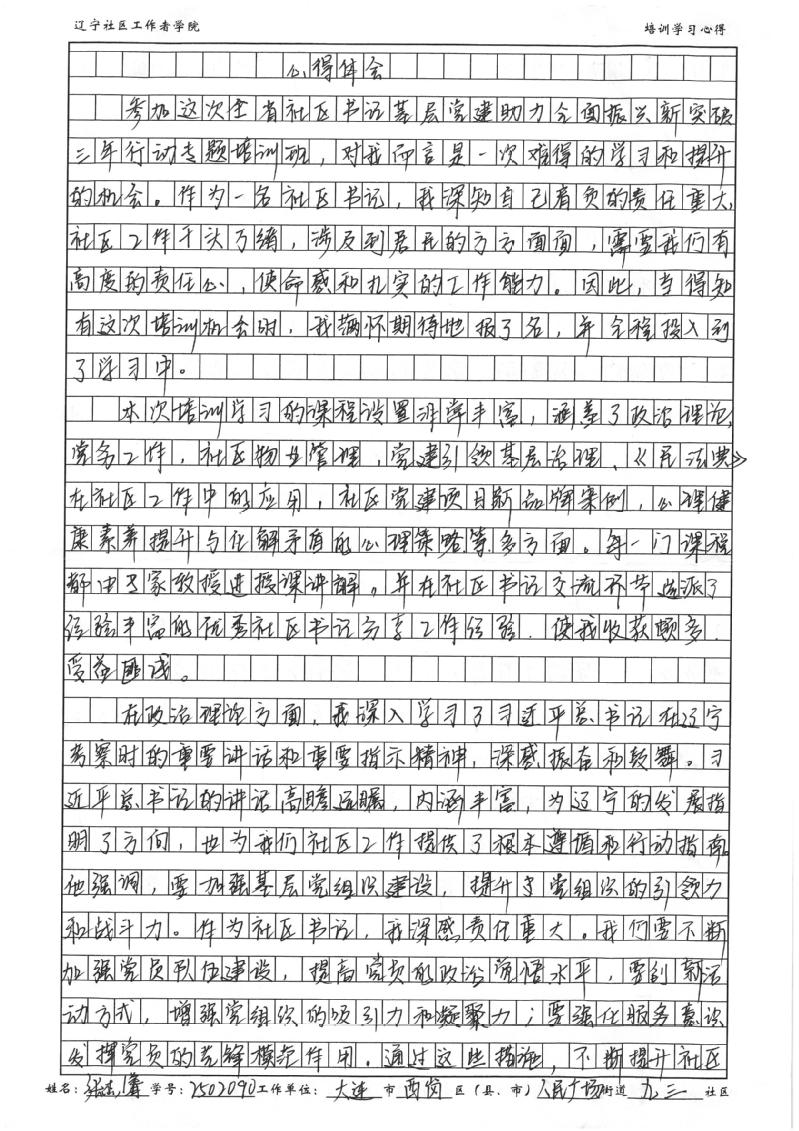 辽宁社区工作者学院 培训学习心得
心得体会
参加这次全省社区书记基层党建助力全面振兴新突破
三年行动专题培训班，对我而言是一次难得的学习和提升
的机会。作为一名社区书记，我深知自己肩负的责任重大，
社区工作千头万绪，涉及到居民的方方面面，需要我们有
高度的责任心，使命感和扎实的工作能力。因此，当得知
有这次培训机会时，我满怀期待地报了名，并全程投入到
了学习中。
本次培训学习的课程设置非常丰富，涵盖了政治理论，
党务工作，社区物业管理，党建引领基层治理、《民法典》
在社区工作中的应用，社区党建项目新品牌案例，心理健
康素养提升与化解矛盾的心理策略等多方面。每一门课程
都由专家教授进授课讲解。并在社区书记交流环节选派了
经验丰富的优秀社区书记分享工作经验．使我收获颇多．
受益匪浅。
在政治理论方面，我深入学习了习近平总书记在辽宁
考察时的重要讲话和重要指示精神，深感振奋和鼓舞。习
近平总书记的讲话高瞻远瞩，内涵丰富，为辽宁的发展指
明了方向，也为我们社区工作提供了根本遵循和行动指南。
他强调，要加强基层党组织建设，提升党组织的引领力
和战斗力。作为社区书记，我深感责任重大。我们要不断
加强党员队伍建设，提高党员的政治觉悟水平，要创新活
动方式，增强党组织的吸引力和凝聚力；要强化服务意识
发挥党员的先锋模范作用。通过这些措施，不断提升社区
姓名： 学号：2502090 工作单位：大连市西岗区（县、市）人民广场街道九三社区